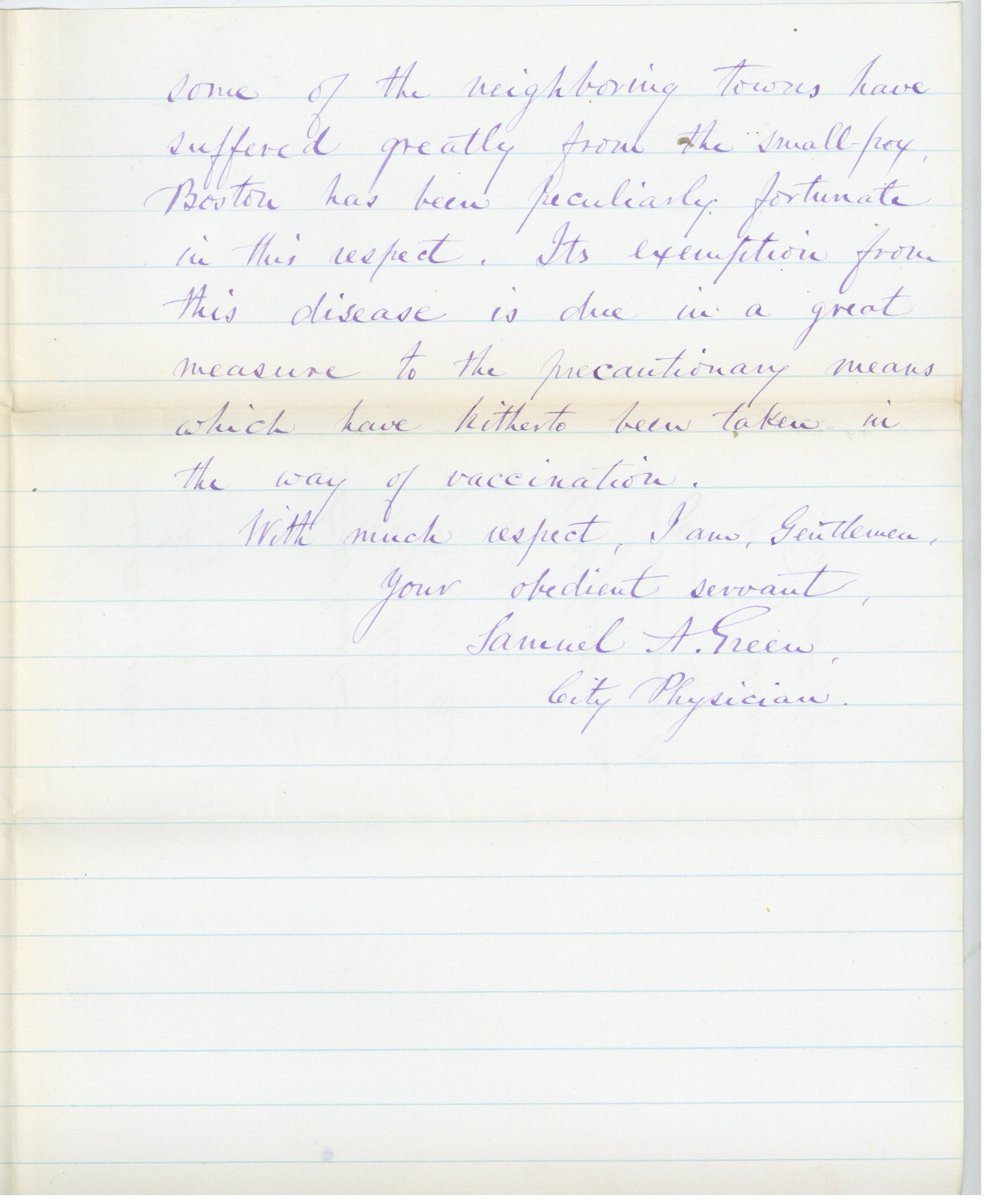 some of the neighboring towns have
suffered greatly from the small-pox,
Boston has been peculiarly fortunate
in this respect. Its exemption from
this disease is due in a great
measure to the precautionary means
which have hitherto been taken in
the way of vaccination.
With much respect, I am, Gentlemen,
Your obedient servant,
Samuel A. Green,
City Physician.